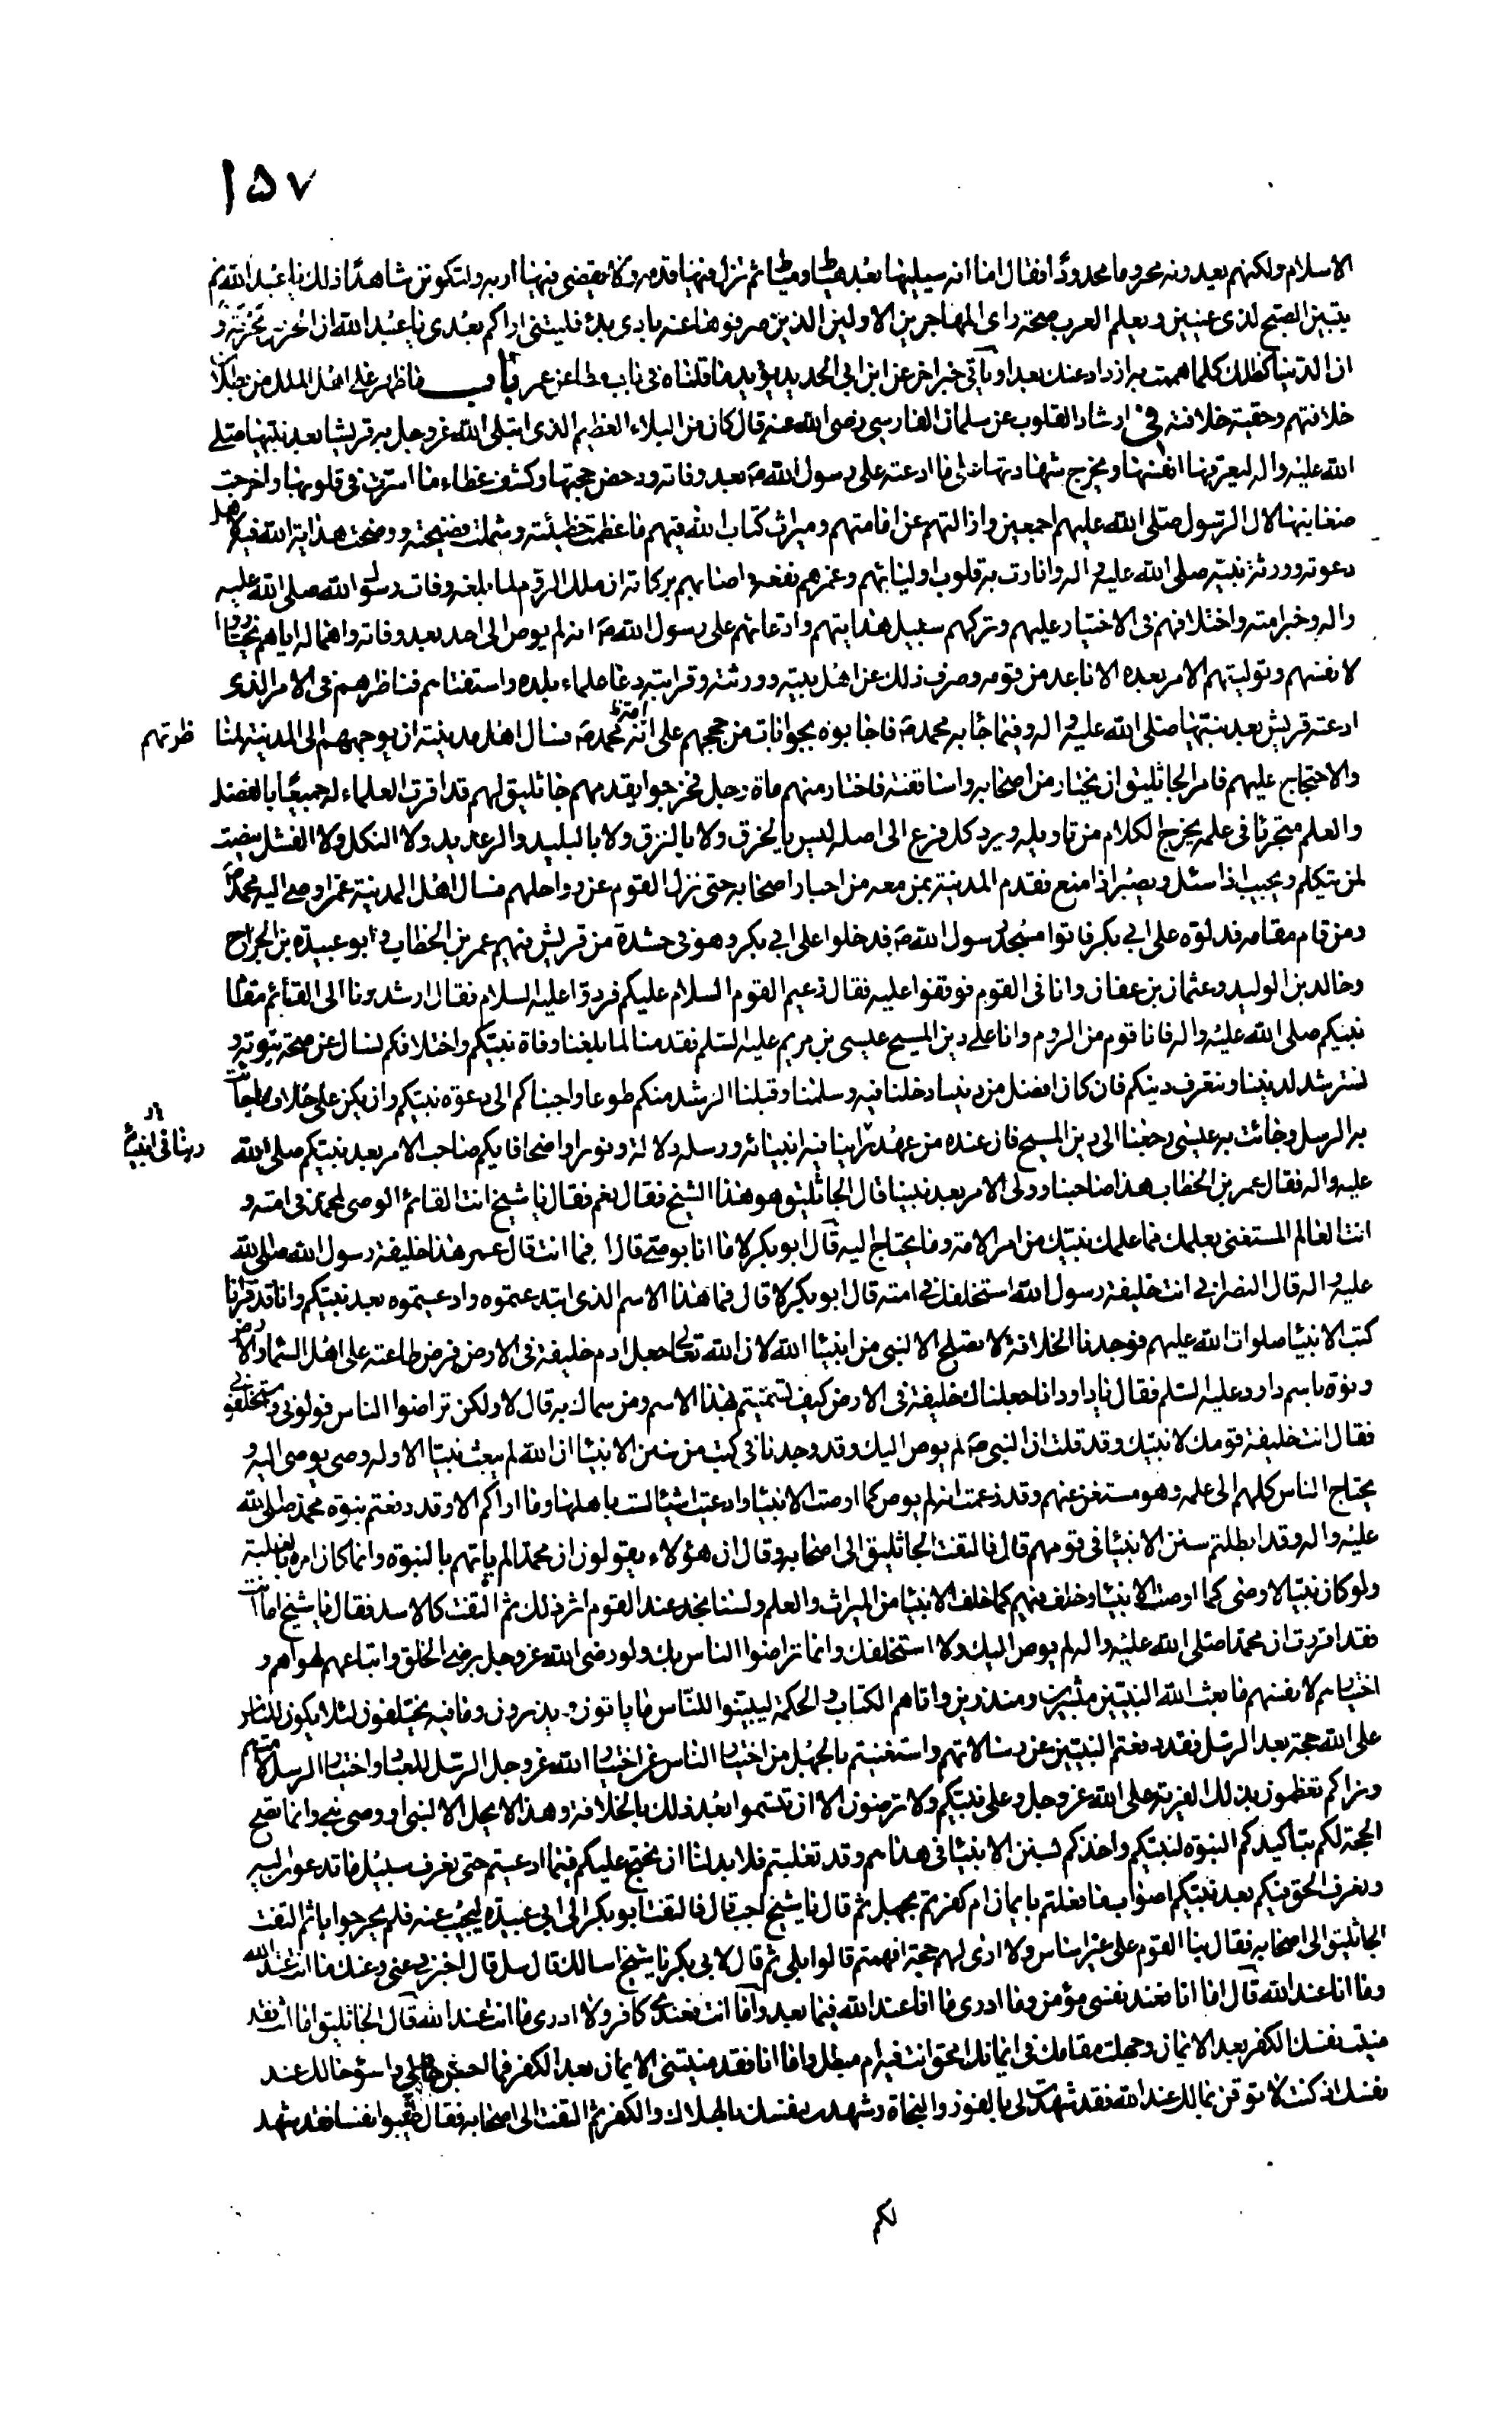 ١٥٧
الاسلام ولكنهم يعيدونه محروما محدودا فقال اما انه سيليها بعد هياط ومياط ثم تزل فيها قدمه ولا يقضى فيها اربه ولتكونن شاهدا ذلك يا عبد الله ثم
يتبين الصبح لذى عينين ويعلم العرب صحة راى المهاجرين الاولين الذين صرفوها عنه بادى بدء فليتنى اراكم بعدى يا عبد الله ان الحرص محرمة و
ان الدنيا كظلك كلما هممت به ازداد عنك بعدا وياتى خبر اخر عن ابن ابى الحديد يؤيد ما قلناه فى باب عن عمر باب فما ظهر على اهل الملل من بطلان
خلافتهم وحقية خلافته فى ارشاد القلوب عن سلمان الفارسى رضى الله عنه قال كان من البلاء العظيم الذى ابتلى الله عز وجل به قريشا بعد نبيها صلى
الله عليه واله ليعرفها انفسها ويخرج شهادتها على ما ادعته على رسول الله ص بعد وفاته ودحض حجتها وكشف غطاء ما استرت فى قلوبها واخرجت
ضغاينها لال الرسول صلى الله عليهم اجمعين وازالتهم عن امامتهم وميراث كتاب الله فيهم ما عظمت خطيئته وشملت فضيحته ووضحت هداية الله فيه لاهل
دعوته وورثة نبيه صلى الله عليه واله وانارت به قلوب اوليائهم وغمرهم نفعه واصابهم بركاته ان ملك الروم لما بلغه وفات رسول الله صلى الله عليه
واله وخبر امته واختلافهم فى الاختيار عليهم وتركهم سبيل هدايتهم وادعائهم على رسول الله ص انه لم يوص الى احد بعد وفاته واهماله اياهم يختاروا
لانفسهم وتوليتهم الامر بعده الاباعد من قومه وصرف ذلك عن اهل بيته وورثته وقرابته دعا علماء بلده واستفتاهم فناظرهم فى الامر الذى
ادعته قريش بعد نبيها صلى الله عليه واله وفيما جاء به محمد ص فاجابوه بجوابات من حججهم على انه محمد ص فسال اهل مدينته ان يوجههم الى المدينة لمناظرتهم
والاحتجاج عليهم فامر الجاثليق ان يختار من اصحابه واساقفته فاختار منهم ماة رجل فخرجوا يقدمهم جاثليق لهم قد اقرت العلماء له جميعا بالفضل
والعلم متبحرا فى علمه يخرج الكلام من تاويله ويرد كل فرع الى اصله ليس بالخرق ولا بالنزق ولا بالبليد والرعديد ولا النكل ولا الفشل ينصت
لمن يتكلم ويجيب اذا سئل ويصبر اذا منع فقدم المدينة بمن معه من احبار اصحابه حتى نزل القوم عن رواحلهم فسال اهل المدينة عمن اوصى اليه محمد ص
ومن قام مقامه فدلوه على ابى بكر فاتوا مسجد رسول الله ص فدخلوا على ابى بكر وهو فى حشدة من قريش فيهم عمر بن الخطاب وابو عبيدة بن الجراح
وخالد بن الوليد وعثمان بن عفان وانا فى القوم فوقفوا عليه فقال زعيم القوم السلام عليكم فردوا عليه السلام فقال ارشدونا الى القائم مقام
نبيكم صلى الله عليه واله فانا قوم من الروم وانا على دين المسيح عيسى بن مريم عليه السلم فقدمنا لما بلغنا وفاة نبيكم واختلافكم لنسال عن صحة نبوته و
نسترشد لديننا ونتعرف دينكم فان كان افضل من ديننا دخلنا فيه وسلمنا وقبلنا الرشد منكم طوعا واجبناكم الى دعوة نبيكم وان يكن على خلاف ما جاءت
به الرسل وجائت به عيسى رجعنا الى دين المسيح فان عنده من عهد ربنا فى انبيائه ورسله دلالة ونورا واضحا فايكم صاحب الامر بعد نبيكم صلى الله
عليه واله فقال عمر بن الخطاب هذا صاحبنا وولى الامر بعد نبينا قال الجاثليق هو هذا الشيخ فقال نعم فقال يا شيخ انت القائم الوصى لمحمد فى امته و
انت العالم المستغنى بعلمك مما علمك نبيك من امر الامة وما يحتاج اليه قال ابو بكر لا ما انا بوصى قال له فما انت قال عمر هذا خليفة رسول الله صلى الله
عليه واله قال النصرانى انت خليفة رسول الله استخلفك فى امته قال ابو بكر لا قال فما هذا الاسم الذى ابتدعتموه وادعيتموه بعد نبيكم وانا قد قرانا
كتب الانبيا صلوات الله عليهم فوجدنا الخلافة لا تصلح الا لنبى من انبيا الله لان الله تعالى جعل ادم خليفة فى الارض فرض طاعته على اهل السماء والارض
ونوه باسم داود عليه السلم فقال يا داود انا جعلناك خليفة فى الارض كيف تسميتم بهذا الاسم ومن سماك به قال لا ولكن تراضوا الناس فولونى واستخلفونى
فقال انت خليفة قومك لا نبيك وقد قلت ان النبى ص لم يوص اليك وقد وجدنا فى كتب من سنن الانبيا ان الله لم يبعث نبيا الا وله وصى يوصى اليه و
يحتاج الناس كلهم الى علمه وهو مستغن عنهم وقد زعمت انه لم يوص كما اوصت الانبيا وادعيت اشياء لست باهلها وما اراكم الا وقد دفعتم نبوة محمد صلى الله
عليه واله وقد ابطلتم سنن الانبيا فى قومهم قال فالتفت الجاثليق الى اصحابه وقال ان هؤلاء يقولون ان محمدا لم ياتهم بالنبوة وانما كان امره بالغلبة
ولو كان نبيا لاوصى كما اوصت الانبيا وخلف فيهم كما خلف الانبيا من الميراث والعلم ولسنا نجد عند القوم اثر ذلك ثم التفت كالاسد فقال يا شيخ اما انت
فقد اقررت ان محمدا صلى الله عليه واله لم يوص اليك ولا استخلفك وانما تراضوا الناس بك ولو رضى الله عز وجل برضى الخلق واتباعهم لهواهم و
اختيارهم لانفسهم ما بعث الله النبيين مبشرين ومنذرين واتاهم الكتاب والحكمة ليبينوا للناس ما ياتون ويذرون وما فيه يختلفون لئلا يكون للناس
على الله حجة بعد الرسل فقد دفعتم النبيين عن رسالاتهم واستغنيتم بالجهل من اختيار الناس عن اختيار الله عز وجل الرسل للعباد واختيار الرسل لامتهم
ونراكم تعظمون بذلك الفرية على الله عز وجل وعلى نبيكم ولا ترضون الا ان تتسموا بعد ذلك بالخلافة وهذا لا يحل الا لنبى او وصى نبى وانما تصح
الحجة لكم بتاكيدكم النبوة لنبيكم واخذكم بسنن الانبيا فى هداهم وقد تغلبتم فلا بد لنا ان نحتج عليكم فيما ادعيتم حتى نعرف سبيل ما تدعون اليه
ونعرف الحق فيكم بعد نبيكم اصواب ما فعلتم بايمان ام كفرتم بجهل ثم قال يا شيخ اجب قال فالتفت ابو بكر الى ابى عبيدة ليجيب عنه فلم يحر جوابا ثم التفت
الجاثليق الى اصحابه فقال بناء القوم على غير اساس ولا ارى لهم حجة افهمتم قالوا بلى ثم قال لابى بكر يا شيخ اسالك قال سل قال اخبرنى عنى وعنك ما انت عند الله
وما انا عند الله قال اما انا فعند نفسى مؤمن وما ادرى ما انا عند الله فيما بعد واما انت فعندى كافر ولا ادرى ما انت عند الله قال الجاثليق اما انت فقد
منيت نفسك الكفر بعد الايمان وجهلت مقامك فى ايمانك امحق انت فيه ام مبطل واما انا فقد منيتنى الايمان بعد الكفر فما احسن حالى واسوء حالك عند
نفسك اذ كنت لا توقن بما لك عند الله فقد شهدت لى بالفوز والنجاة وشهدت لنفسك بالهلاك والكفر ثم التفت الى اصحابه فقال طيبوا نفسا فقد شهد
لكم